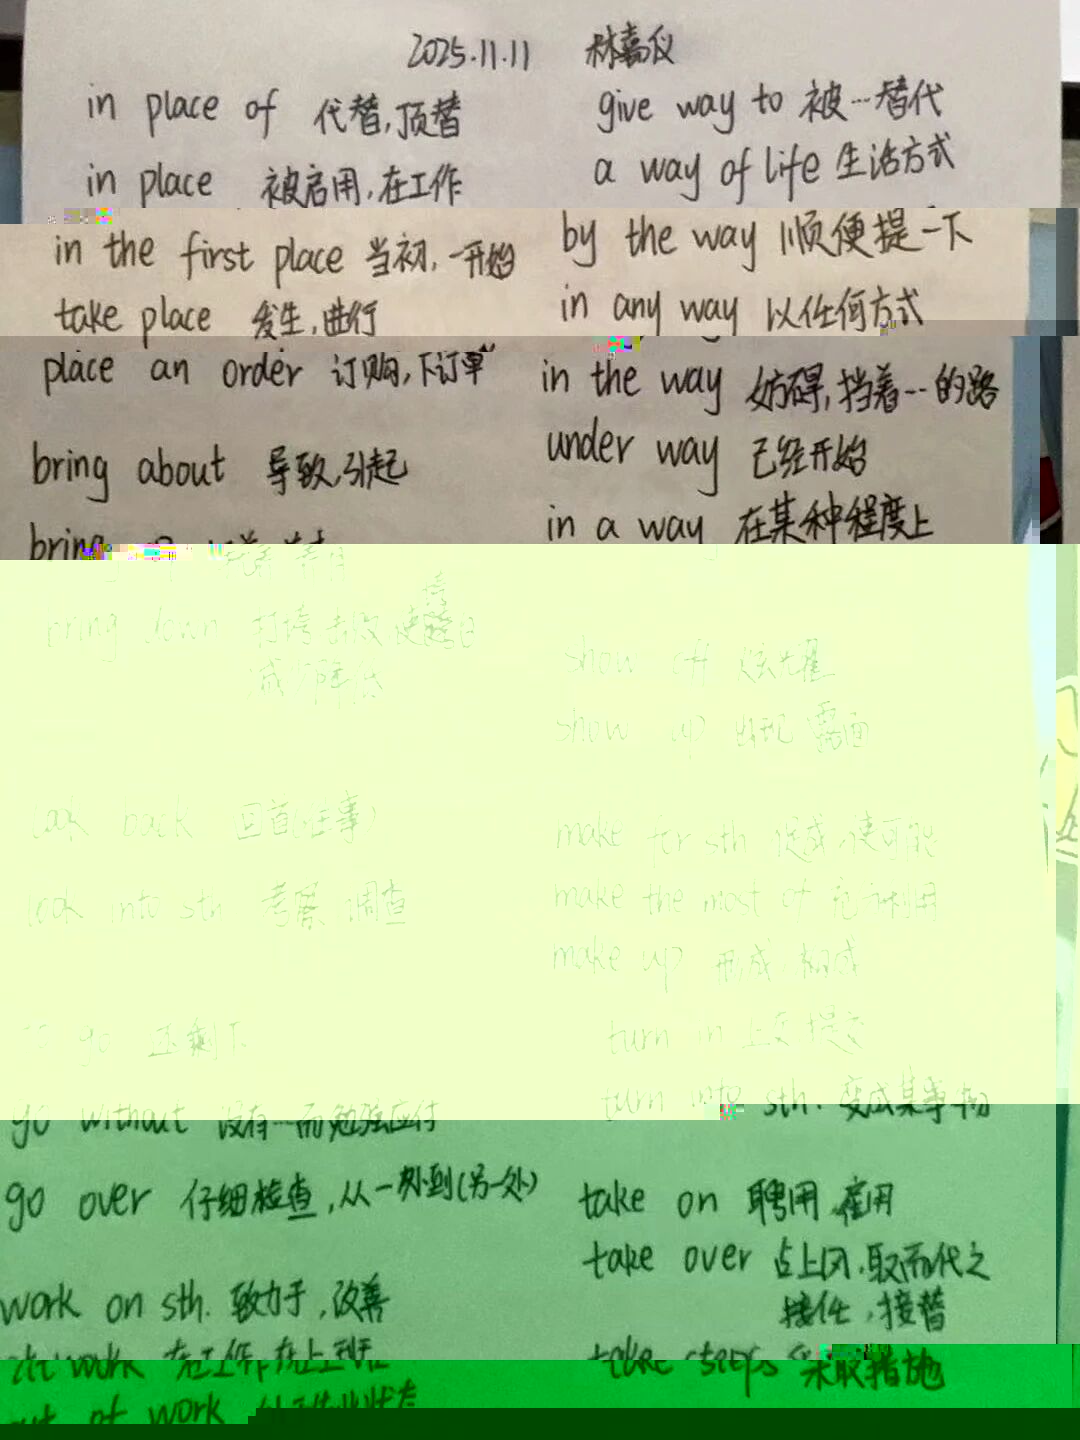 2025.11.11 林嘉仪
in place of 代替,顶替
in place 被启用,在工作
in the first place 当初,一开始
take place 发生,进行
place an order 订购,下订单
bring about 导致,引起
bring
bring down 打垮 击败 使
减少 降低
look back 回首(往事)
look into sth 考察 调查
go 还剩下
go without 没有…而勉强应付
go over 仔细检查,从一处到(另一处)
work on sth. 致力于,改善
at work 在工作,在上班
out of work
give way to 被…替代
a way of life 生活方式
by the way 顺便提一下
in any way 以任何方式
in the way 妨碍,挡着…的路
under way 已经开始
in a way 在某种程度上
show off 炫耀
show up 出现 露面
make for sth 促成,使可能
make the most of 充分利用
make up 形成,构成
turn in 上交 提交
turn into sth. 变成某事物
take on 聘用,雇用
take over 占上风,取而代之
接任,接替
take steps 采取措施